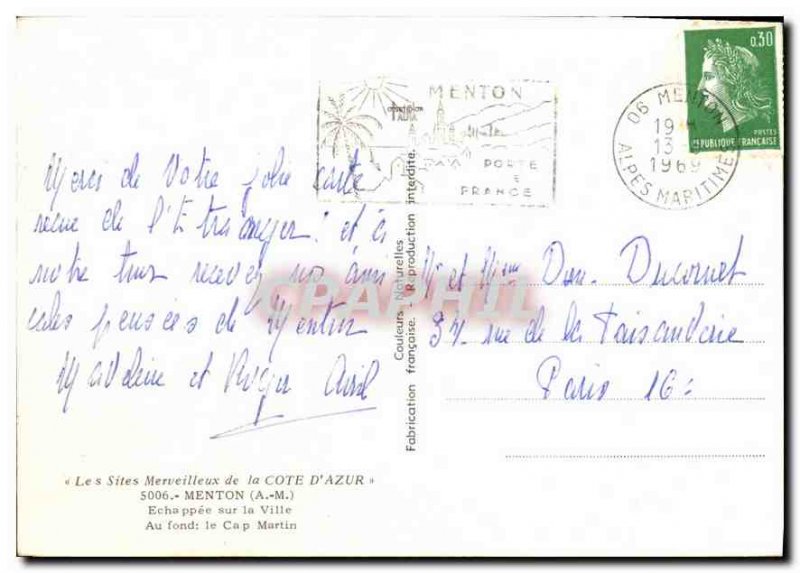 MENTON
PORTE
DE
FRANCE
06 MENTON
19 H
13
1969
ALPES MARITIMES
0,30
POSTES
REPUBLIQUE FRANÇAISE
Merci de Votre jolie carte
reçue de l'Etranger: et à
notre tour recevez nos ami
cales pensées de Menton
Madeleine et Roger Avril
Mr et Mme Dan. Ducornet
34 rue de la Faisanderie
Paris 16e
Fabrication française. - Reproduction interdite.
Couleurs Naturelles
CPAPHIL
« Les Sites Merveilleux de la COTE D'AZUR »
5006.- MENTON (A.-M.)
Echappée sur la Ville
Au fond: le Cap Martin